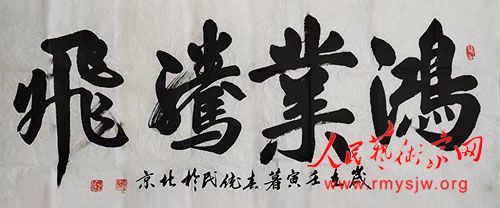 鴻業騰飛
歲在壬寅春民於北京
人民藝術家网
www.rmysjw.org